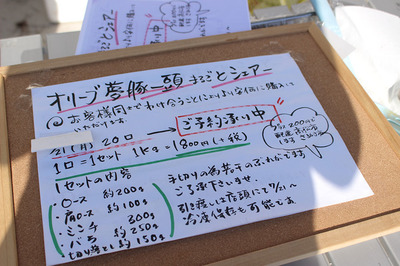 オリーブ夢豚一頭 まるごとシェアー
お客様同士でわけ合うことにより お安価に購入して
いただけます
21(月) 20口 → ご予約承り中
1口=1セット 1kg=1800円(+税)
プラス200円で
1セットの内容
・ロース 約200g
・肩ロース 約100g
・ミンチ 300g
・バラ 約250g
・切り落とし 約150g
手切りの為若干のズレがでます
ご了承下さいませ。
引き渡しは店頭にて 11/21〜
冷凍保存も可能です。